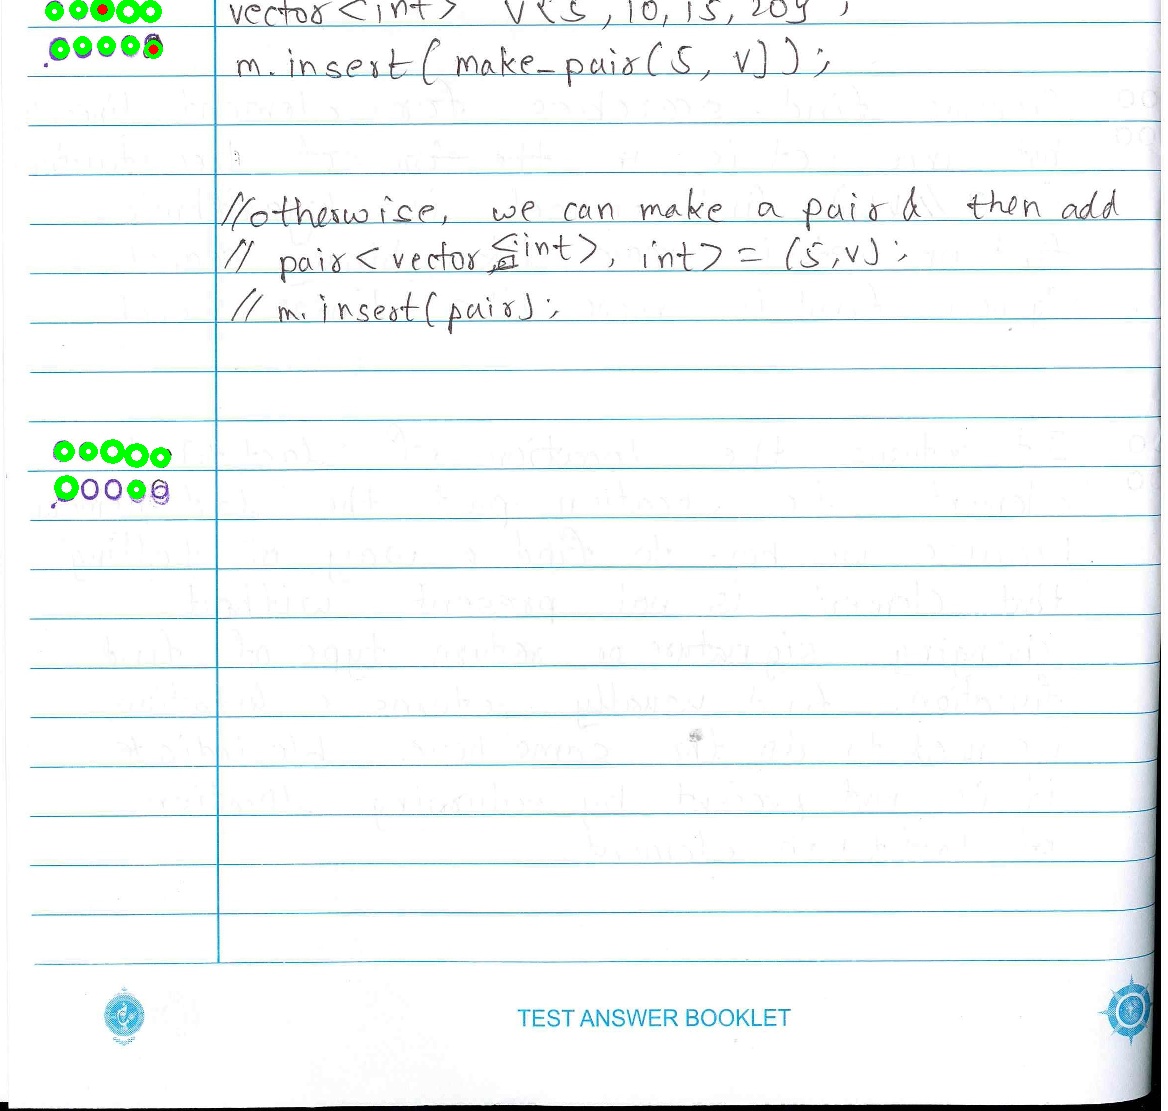 vector <int> V{5, 10, 15, 20};
m. insert ( make_pair(5, v));
//otherwise, we can make a pair & then add
// pair < vector <int>, int> = (5,v);
// m. insert(pair);
TEST ANSWER BOOKLET